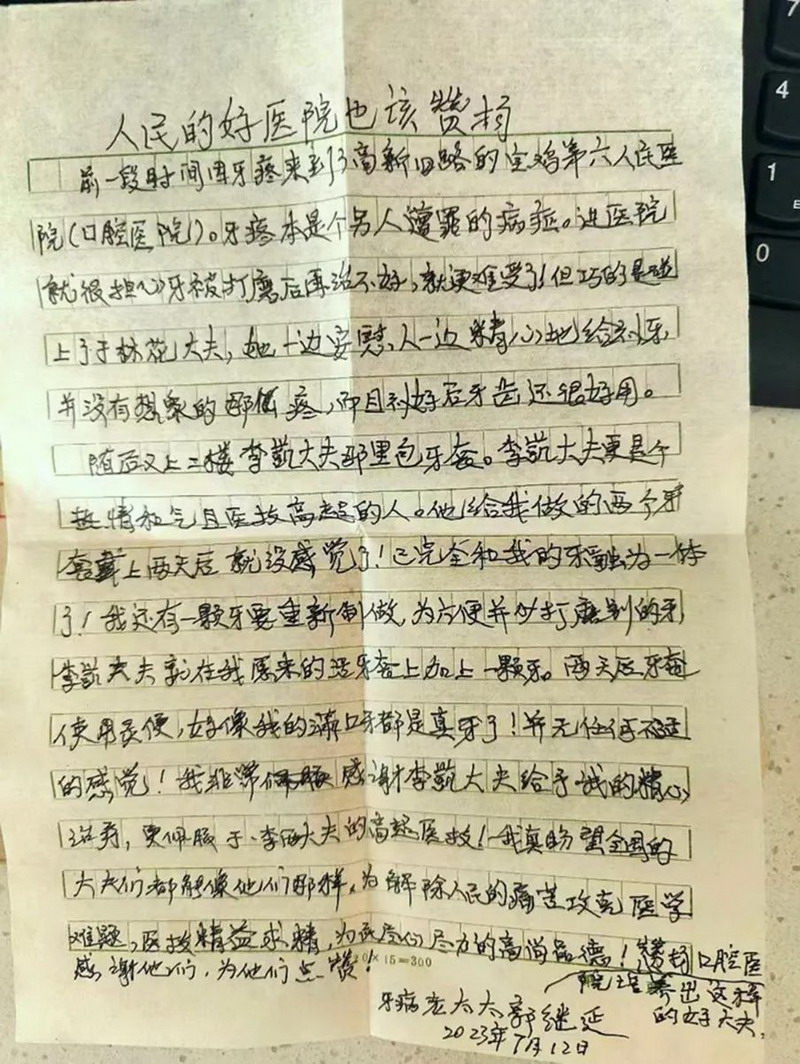 人民的好医院也该赞扬
前一段时间因牙疼来到了高新旧路的宝鸡第六人民医
院(口腔医院)。牙疼本是个另人遭罪的病症。进医院
就很担心牙被打磨后再治不好,就更难受了!但巧的是碰
上了于林花大夫,她一边安慰人一边精心地给治牙,
并没有想象的那低疼,而且治好后牙齿还很好用。
随后又上二楼李凯大夫那里包牙套。李凯大夫更是个
热情和气且医技高超的人。他给我做的两个牙
套戴上两天后就没感觉了!已完全和我的牙融为一体
了!我还有一颗牙要重新制做,为方便并少打磨别的牙,
李凯大夫就在我原来的活牙套上加上一颗牙。两天后牙套
使用灵便,好像我的满口牙都是真牙了!并无任何不适
的感觉!我非常感谢李凯大夫给予我的精心
治疗,更佩服于、李两大夫的高超医技!我真盼望全国的
大夫们都能像他们那样,为解除人民的痛苦攻克医学
难题,医技精益求精,为民尽心尽力的高尚品德!赞扬口腔医
院培养出这样
的好大夫,
感谢他们,为他们点赞!
20×15=300
牙病老太太郭继延
2023年7月12日
7
4
1
0